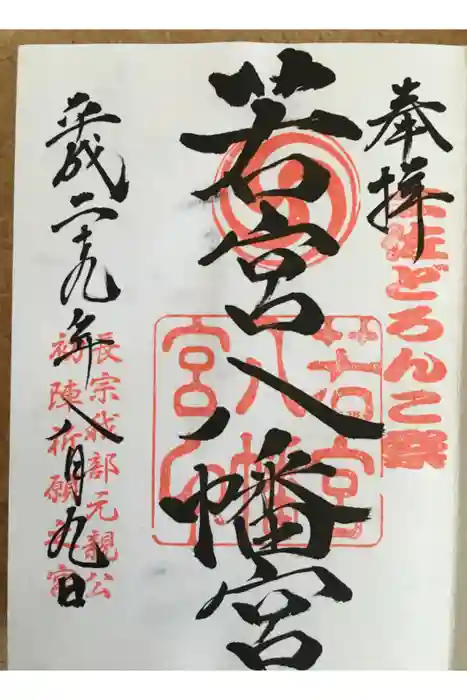 奉拝
土佐どろんこ祭
若宮八幡宮
若宮八幡宮印
平成二十九年八月九日
長宗我部元親公
初陣祈願